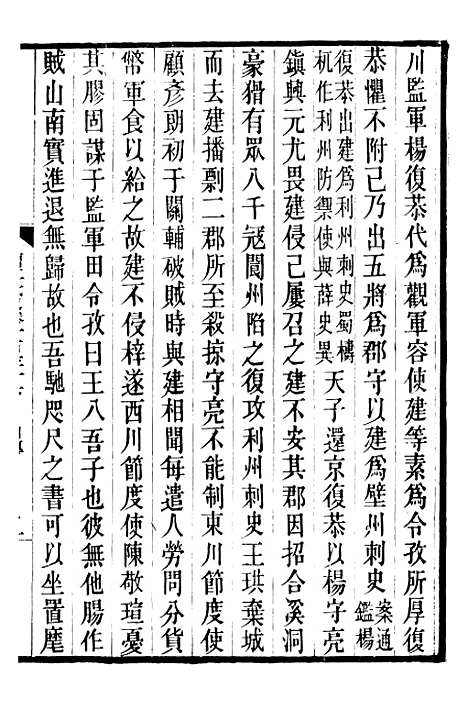 川監軍楊復恭代爲觀軍容使建等素爲令孜所厚復
恭懼不附己乃出五將爲郡守以建爲壁州刺史案通鑑楊
復恭出建爲利州刺史蜀檮杌作利州防禦使與薛史異天子還京復恭以楊守亮
鎭興元尤畏建侵己屢召之建不安其郡因招合溪洞
豪猾有眾八千冦閬州陷之復攻利州刺史王珙棄城
而去建播剽二郡所至殺掠守亮不能制東川節度使
顧彥朗初于關輔破賊時與建相聞每遣人勞問分貨
幣軍食以給之故建不侵梓遂西川節度使陳敬瑄憂
其膠固謀于監軍田令孜曰王八吾子也彼無他腸作
賊山南實進退無歸故也吾馳咫尺之書可以坐置麾